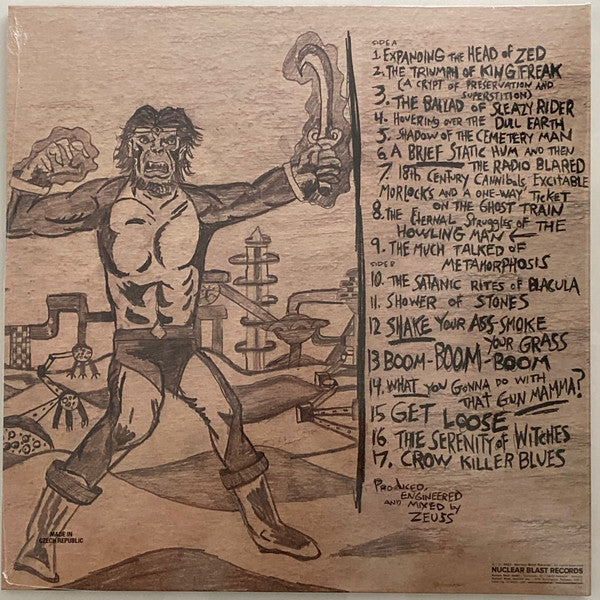 SIDE A
1. EXPANDING THE HEAD OF ZED
2. THE TRIUMPH OF KING FREAK
(A CRYPT OF PRESERVATION AND
SUPERSTITION)
3. THE BALLAD OF SLEAZY RIDER
4. HOVERING OVER THE DULL EARTH
5. SHADOW OF THE CEMETERY MAN
6. A BRIEF STATIC HUM AND THEN
THE RADIO BLARED
7. 18th CENTURY CANNIBALS, EXCITABLE
MORLOCKS AND A ONE-WAY TICKET
ON THE GHOST TRAIN
8. THE ETERNAL STRUGGLES OF THE
HOWLING MAN
9. THE MUCH TALKED OF
METAMORPHOSIS
SIDE B
10. THE SATANIC RITES OF BLACULA
11. SHOWER OF STONES
12 SHAKE YOUR ASS-SMOKE
YOUR GRASS
13 BOOM-BOOM-BOOM
14. WHAT YOU GONNA DO WITH
THAT GUN MAMMA?
15 GET LOOSE
16 THE SERENITY OF WITCHES
17. CROW KILLER BLUES
PRODUCED,
ENGINEERED
AND MIXED BY
ZEUSS
MADE IN
CZECH REPUBLIC
NUCLEAR BLAST RECORDS